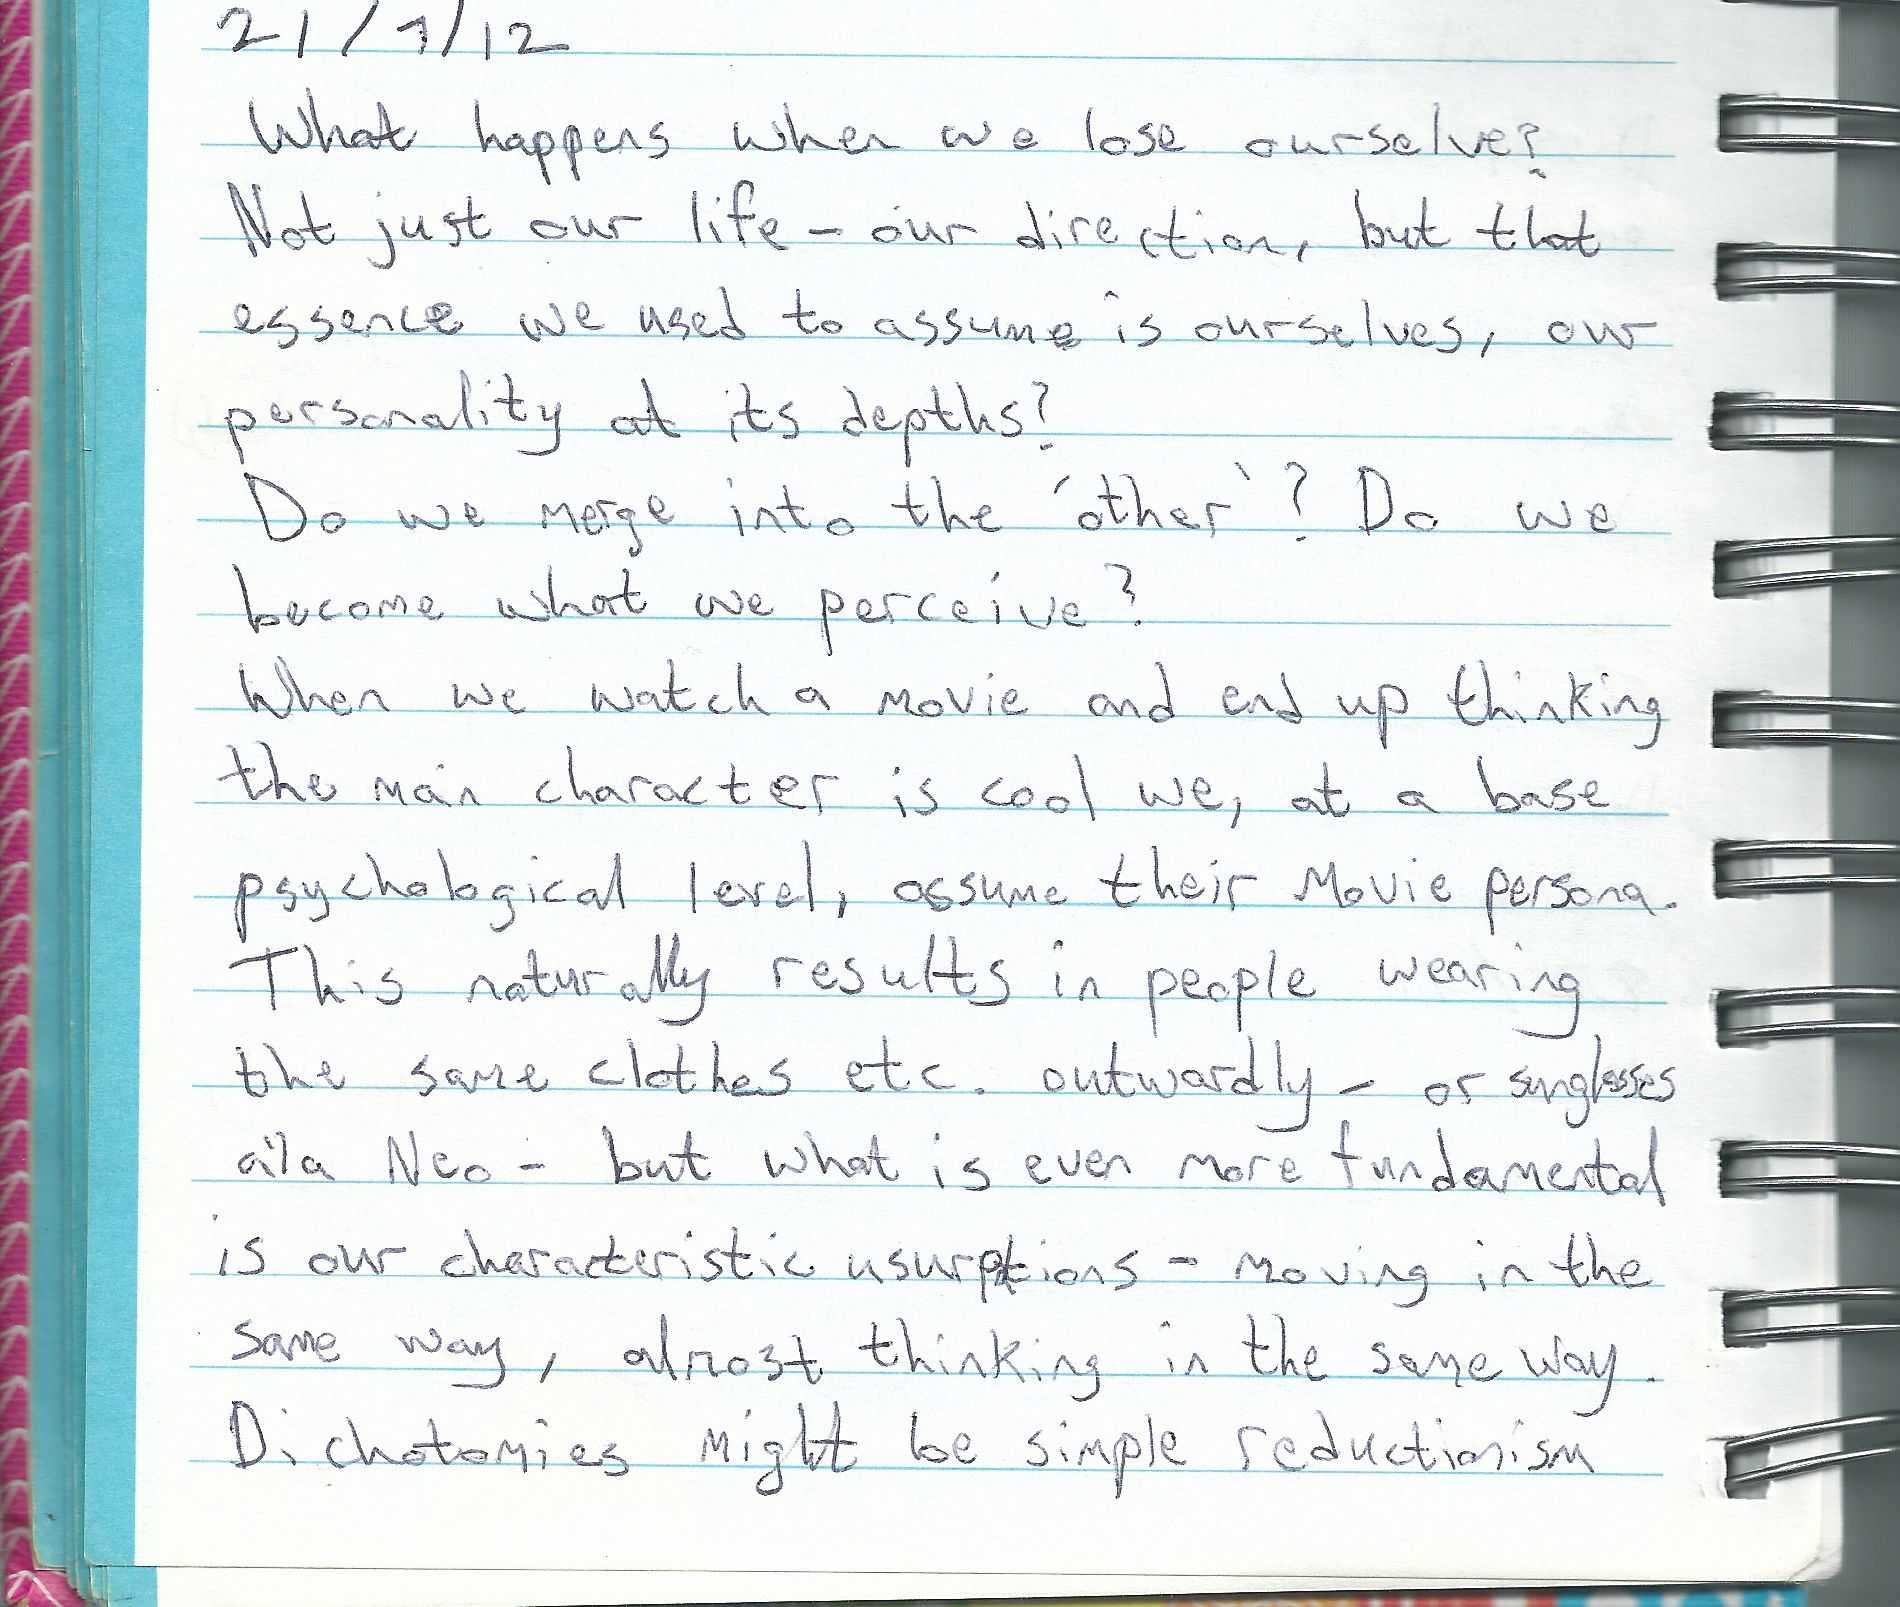 21/7/12
What happens when we lose ourselve?
Not just our life - our direction, but that
essence we used to assume is ourselves, our
personality at its depths?
Do we merge into the 'other'? Do we
become what we perceive?
When we watch a movie and end up thinking
the main character is cool we, at a base
psychological level, assume their movie persona.
This naturally results in people wearing
the same clothes etc. outwardly - or sunglasses
a'la Neo - but what is even more fundamental
is our characteristic usurptions - moving in the
same way, almost thinking in the same way.
Dichotomies might be simple reductionism